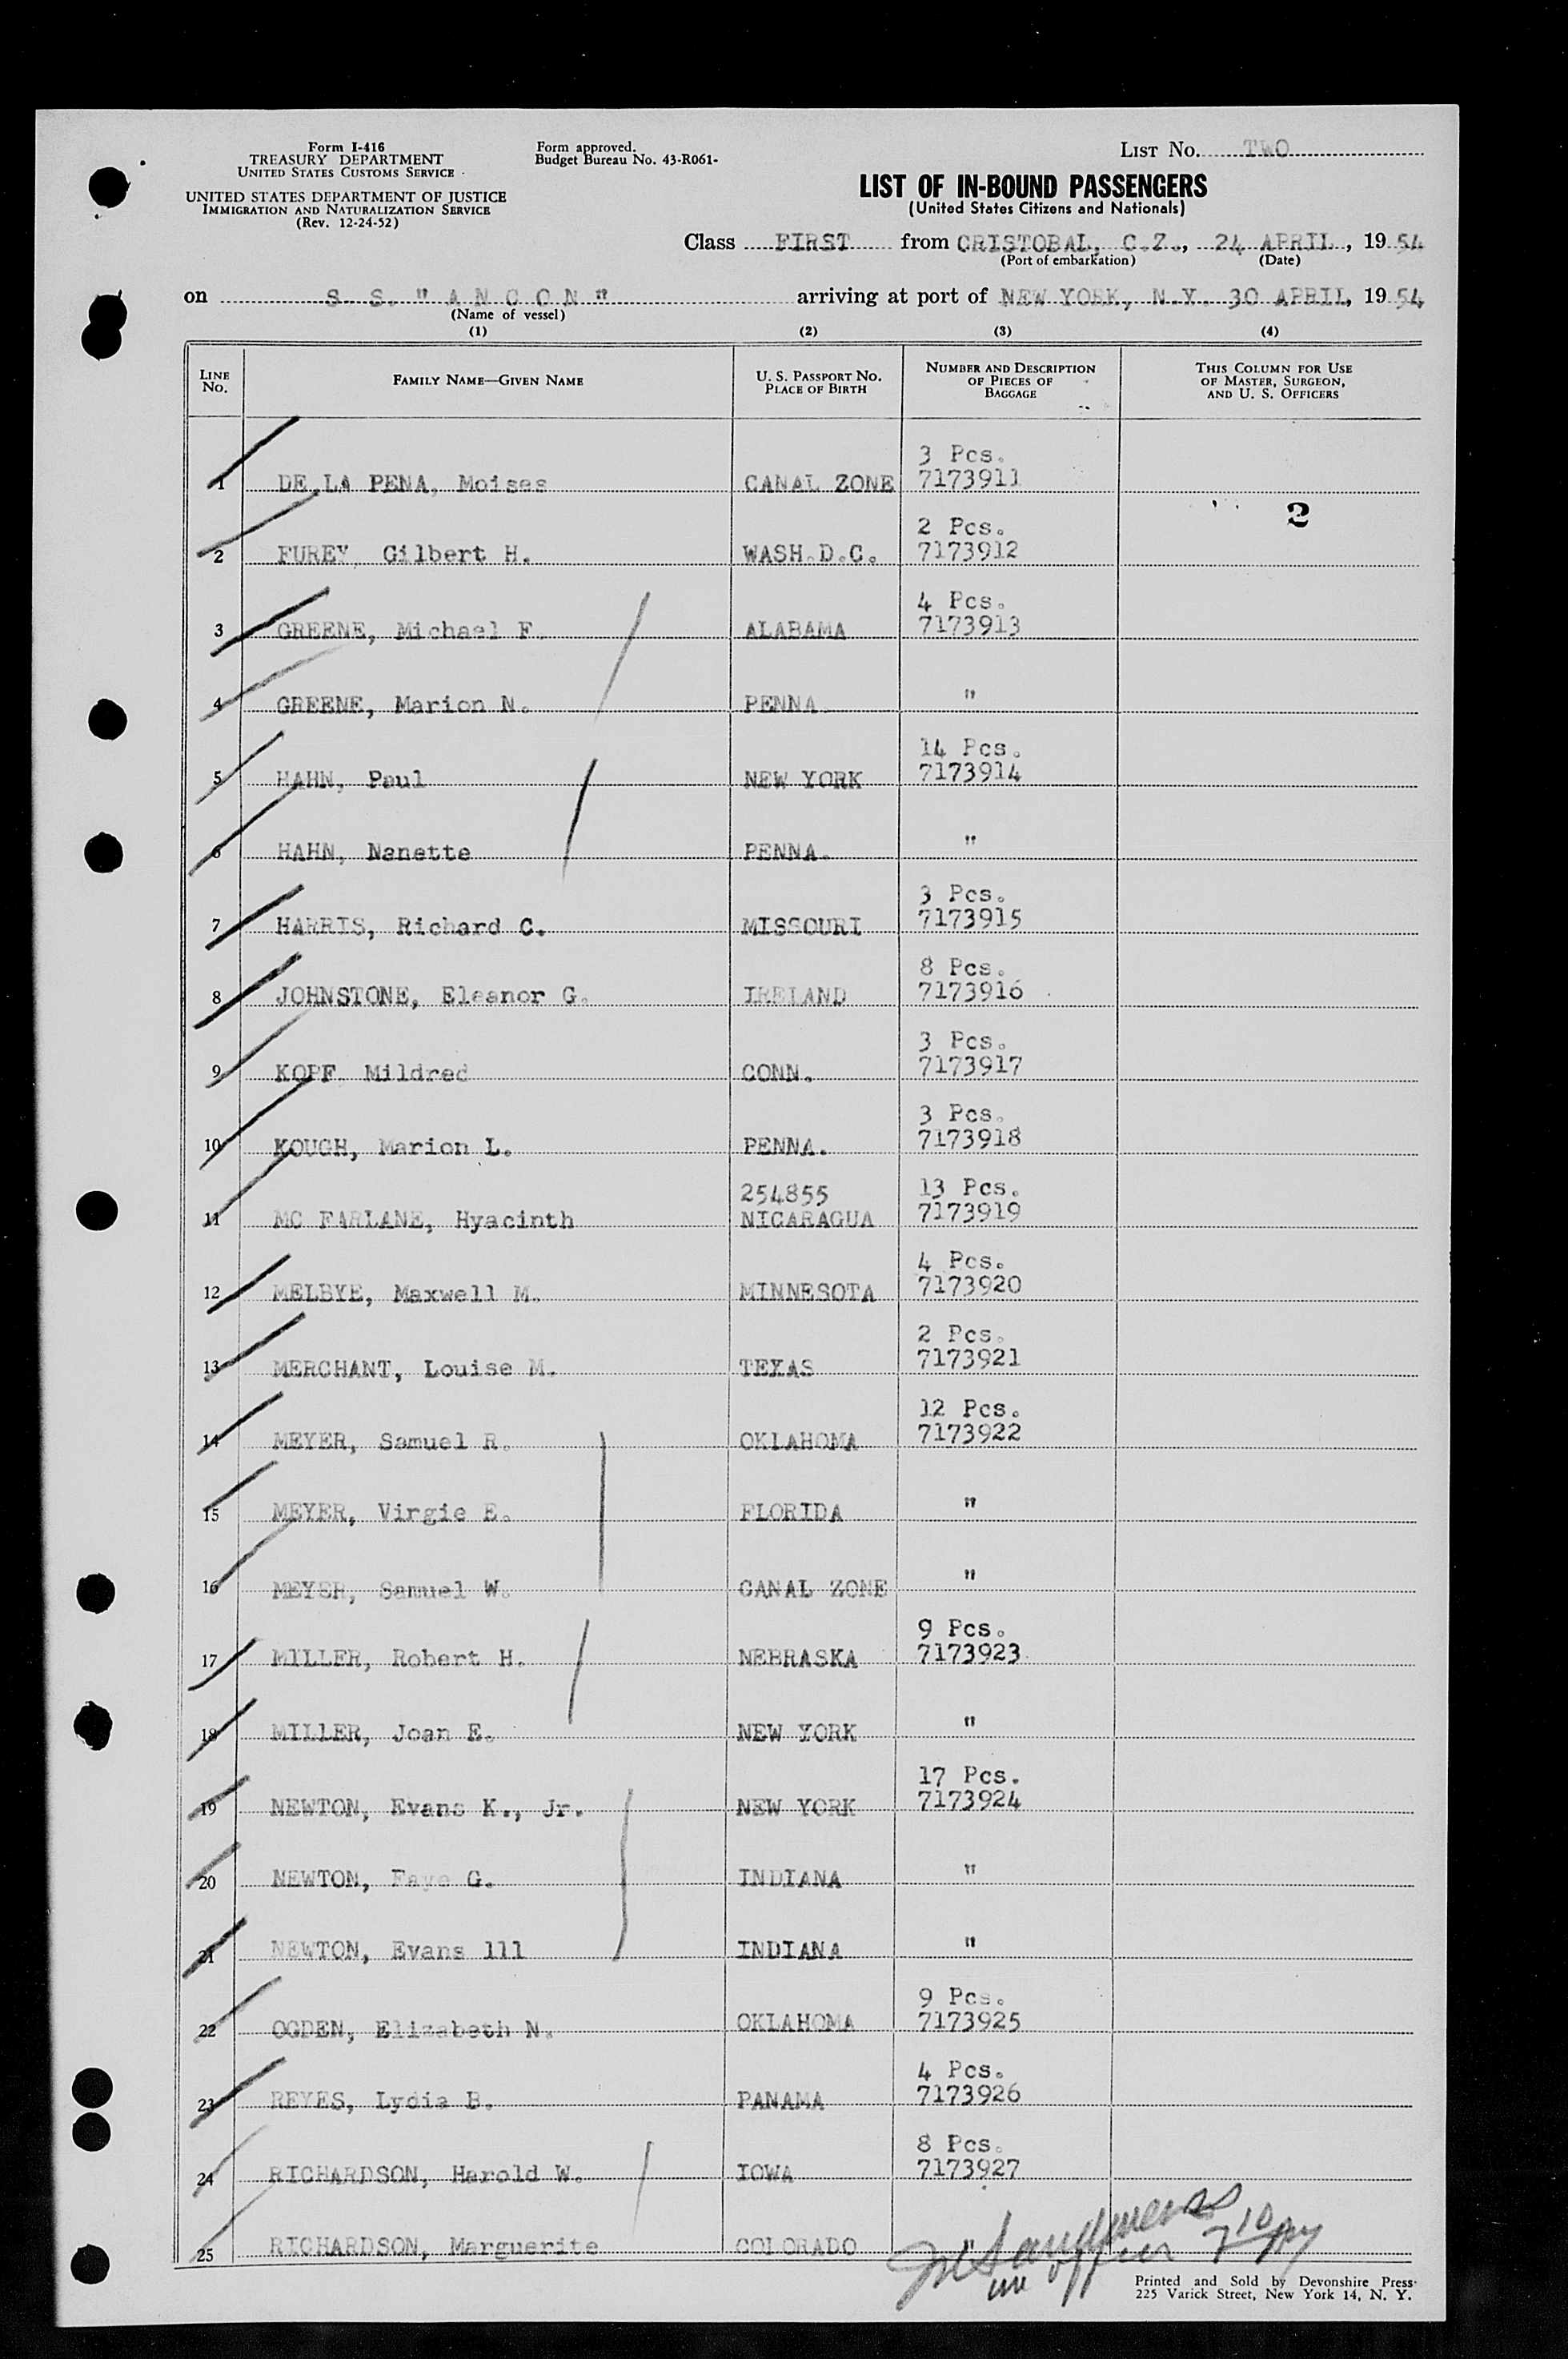 Form I-416
TREASURY DEPARTMENT
UNITED STATES CUSTOMS SERVICE
UNITED STATES DEPARTMENT OF JUSTICE
IMMIGRATION AND NATURALIZATION SERVICE
(Rev. 12-24-52)
Form approved.
Budget Bureau No. 43-R061-
LIST NO. TWO
LIST OF IN-BOUND PASSENGERS
(United States Citizens and Nationals)
Class FIRST from CRISTOBAL, C.Z., 24 APRIL, 1954
(Port of embarkation) (Date)
on S. S. "ANCON" arriving at port of NEW YORK, N.Y. 30 APRIL, 1954
(Name of vessel)
(1) (2) (3) (4)
LINE NO. FAMILY NAME—GIVEN NAME U. S. PASSPORT NO. PLACE OF BIRTH NUMBER AND DESCRIPTION OF PIECES OF BAGGAGE THIS COLUMN FOR USE OF MASTER, SURGEON, AND U. S. OFFICERS
3 Pcs.
1 DE LA PENA, Moises CANAL ZONE 7173911
2
2 Pcs.
2 FUREY, Gilbert H. WASH.D.C. 7173912
4 Pcs.
3 GREENE, Michael F. ALABAMA 7173913
4 GREENE, Marion N. PENNA. "
14 Pcs.
5 HAHN, Paul NEW YORK 7173914
6 HAHN, Nanette PENNA. "
3 Pcs.
7 HARRIS, Richard C. MISSOURI 7173915
8 Pcs.
8 JOHNSTONE, Eleanor G. IRELAND 7173916
3 Pcs.
9 KOPF, Mildred CONN. 7173917
3 Pcs.
10 KOUGH, Marion L. PENNA. 7173918
254855 13 Pcs.
11 MC FARLANE, Hyacinth NICARAGUA 7173919
4 Pcs.
12 MELBYE, Maxwell M. MINNESOTA 7173920
2 Pcs.
13 MERCHANT, Louise M. TEXAS 7173921
12 Pcs.
14 MEYER, Samuel R. OKLAHOMA 7173922
15 MEYER, Virgie E. FLORIDA "
16 MEYER, Samuel W. CANAL ZONE "
9 Pcs.
17 MILLER, Robert H. NEBRASKA 7173923
18 MILLER, Joan E. NEW YORK "
17 Pcs.
19 NEWTON, Evans K., Jr. NEW YORK 7173924
20 NEWTON, Faye G. INDIANA "
21 NEWTON, Evans 111 INDIANA "
9 Pcs.
22 OGDEN, Elizabeth N. OKLAHOMA 7173925
4 Pcs.
23 REYES, Lydia B. PANAMA 7173926
8 Pcs.
24 RICHARDSON, Harold W. IOWA 7173927
25 RICHARDSON, Marguerite COLORADO "
Printed and Sold by Devonshire Press
225 Varick Street, New York 14, N. Y.